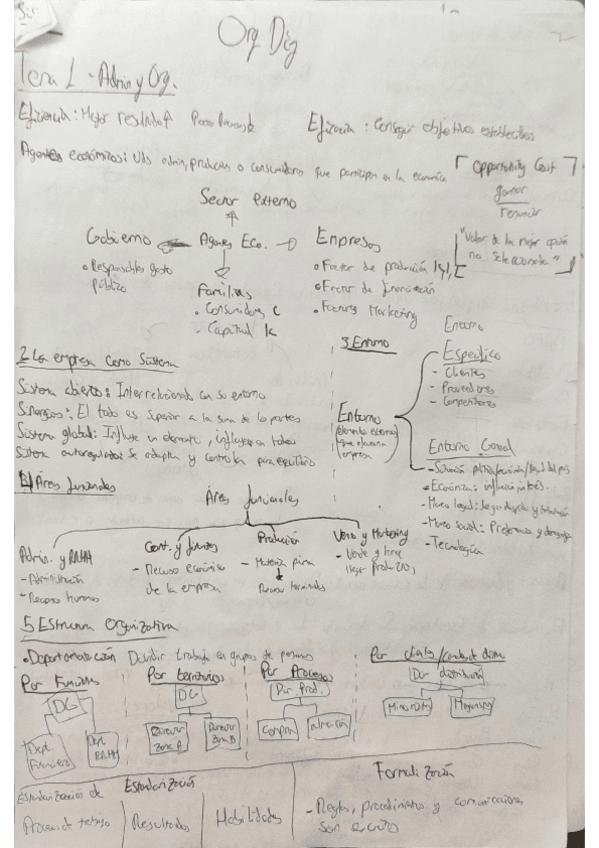 Org Dig
2
Tema 1 - Admin y Org.
Eficiencia: Mejor resultado Eficacia: Conseguir objetivos establecidos
Agentes económicos: Uds admin, productoras o consumidoras que participan en la economía
Opportunity Cost
ganar
renunciar
"Valor de la mejor opción
no seleccionada"
Sector externo
Gobierno Agentes Eco. Empresas
• Responsables gasto
público
Familias
• Consumidores C
• Capital K
• Factor de producción
• Factor de financiación
• Factores Marketing
2. La empresa como sistema
Sistema abierto: Interrelacionado con su entorno
Sinergias: El todo es superior a la suma de las partes
Sistema global: Influye un elemento, influyes en todos
Sistema autorregulador: Se adapta y controla para equilibrio
3. Entorno
Entorno
elementos externos
que afectan a
empresa
Entorno
Específico
- Clientes
- Proveedores
- Competidores
Entorno General
- Situación
• Económica: inflación, interés.
- Marco legal:
- Marco social: Preferencias y demografía
- Tecnológica
Áreas funcionales
Áreas funcionales
Admin. y RRHH
- Administración
- Recursos humanos
Cont. y finanzas
- Recurso económico
de la empresa
Producción
- Materia prima
Recursos terminados
Venta y Marketing
- Vende y hace
llegar productos
5. Estructura organizativa
• Departamentalización Dividir trabajo en grupos de personas
Por Funciones
DG
Dept.
Financiero
Dept.
RRHH
Por territorios
DG
Director
Zona A
Director
Zona B
Por Procesos
Dir Prod.
Compras
almacén
Por clientes/canales de distr.
Dir distribución
Minorista
Mayorista
Estandarización
Estandarización de
Procesos de trabajo
Resultados
Habilidades
Formalización
- Reglas, procedimientos y comunicaciones
son escritos